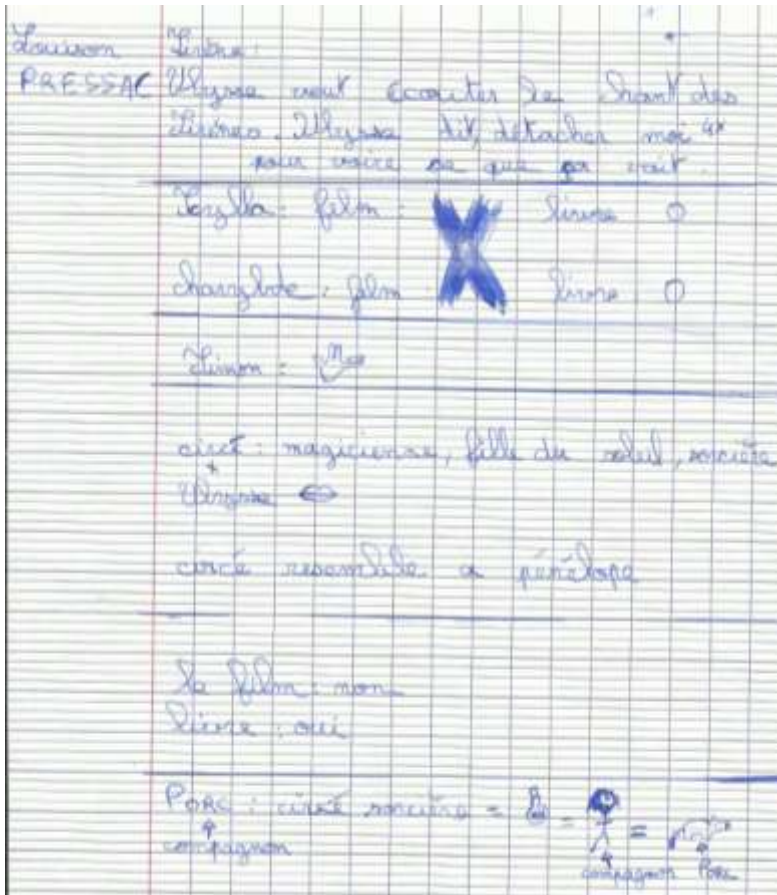 Louison
PRESSAC
Sirène :
Ulysse veut écouter le chant des
Sirènes. Ulysse dit, détacher moi 4x
pour voire se que ça
Scylla : film : X livre O
charybde : film livre O
circé : magicienne, fille du soleil, sorcière
+
⇔
circé resemble a pénélope
le film : non
livre : oui
PORC : circé sorcière = = =
compagnon
compagnon Porc